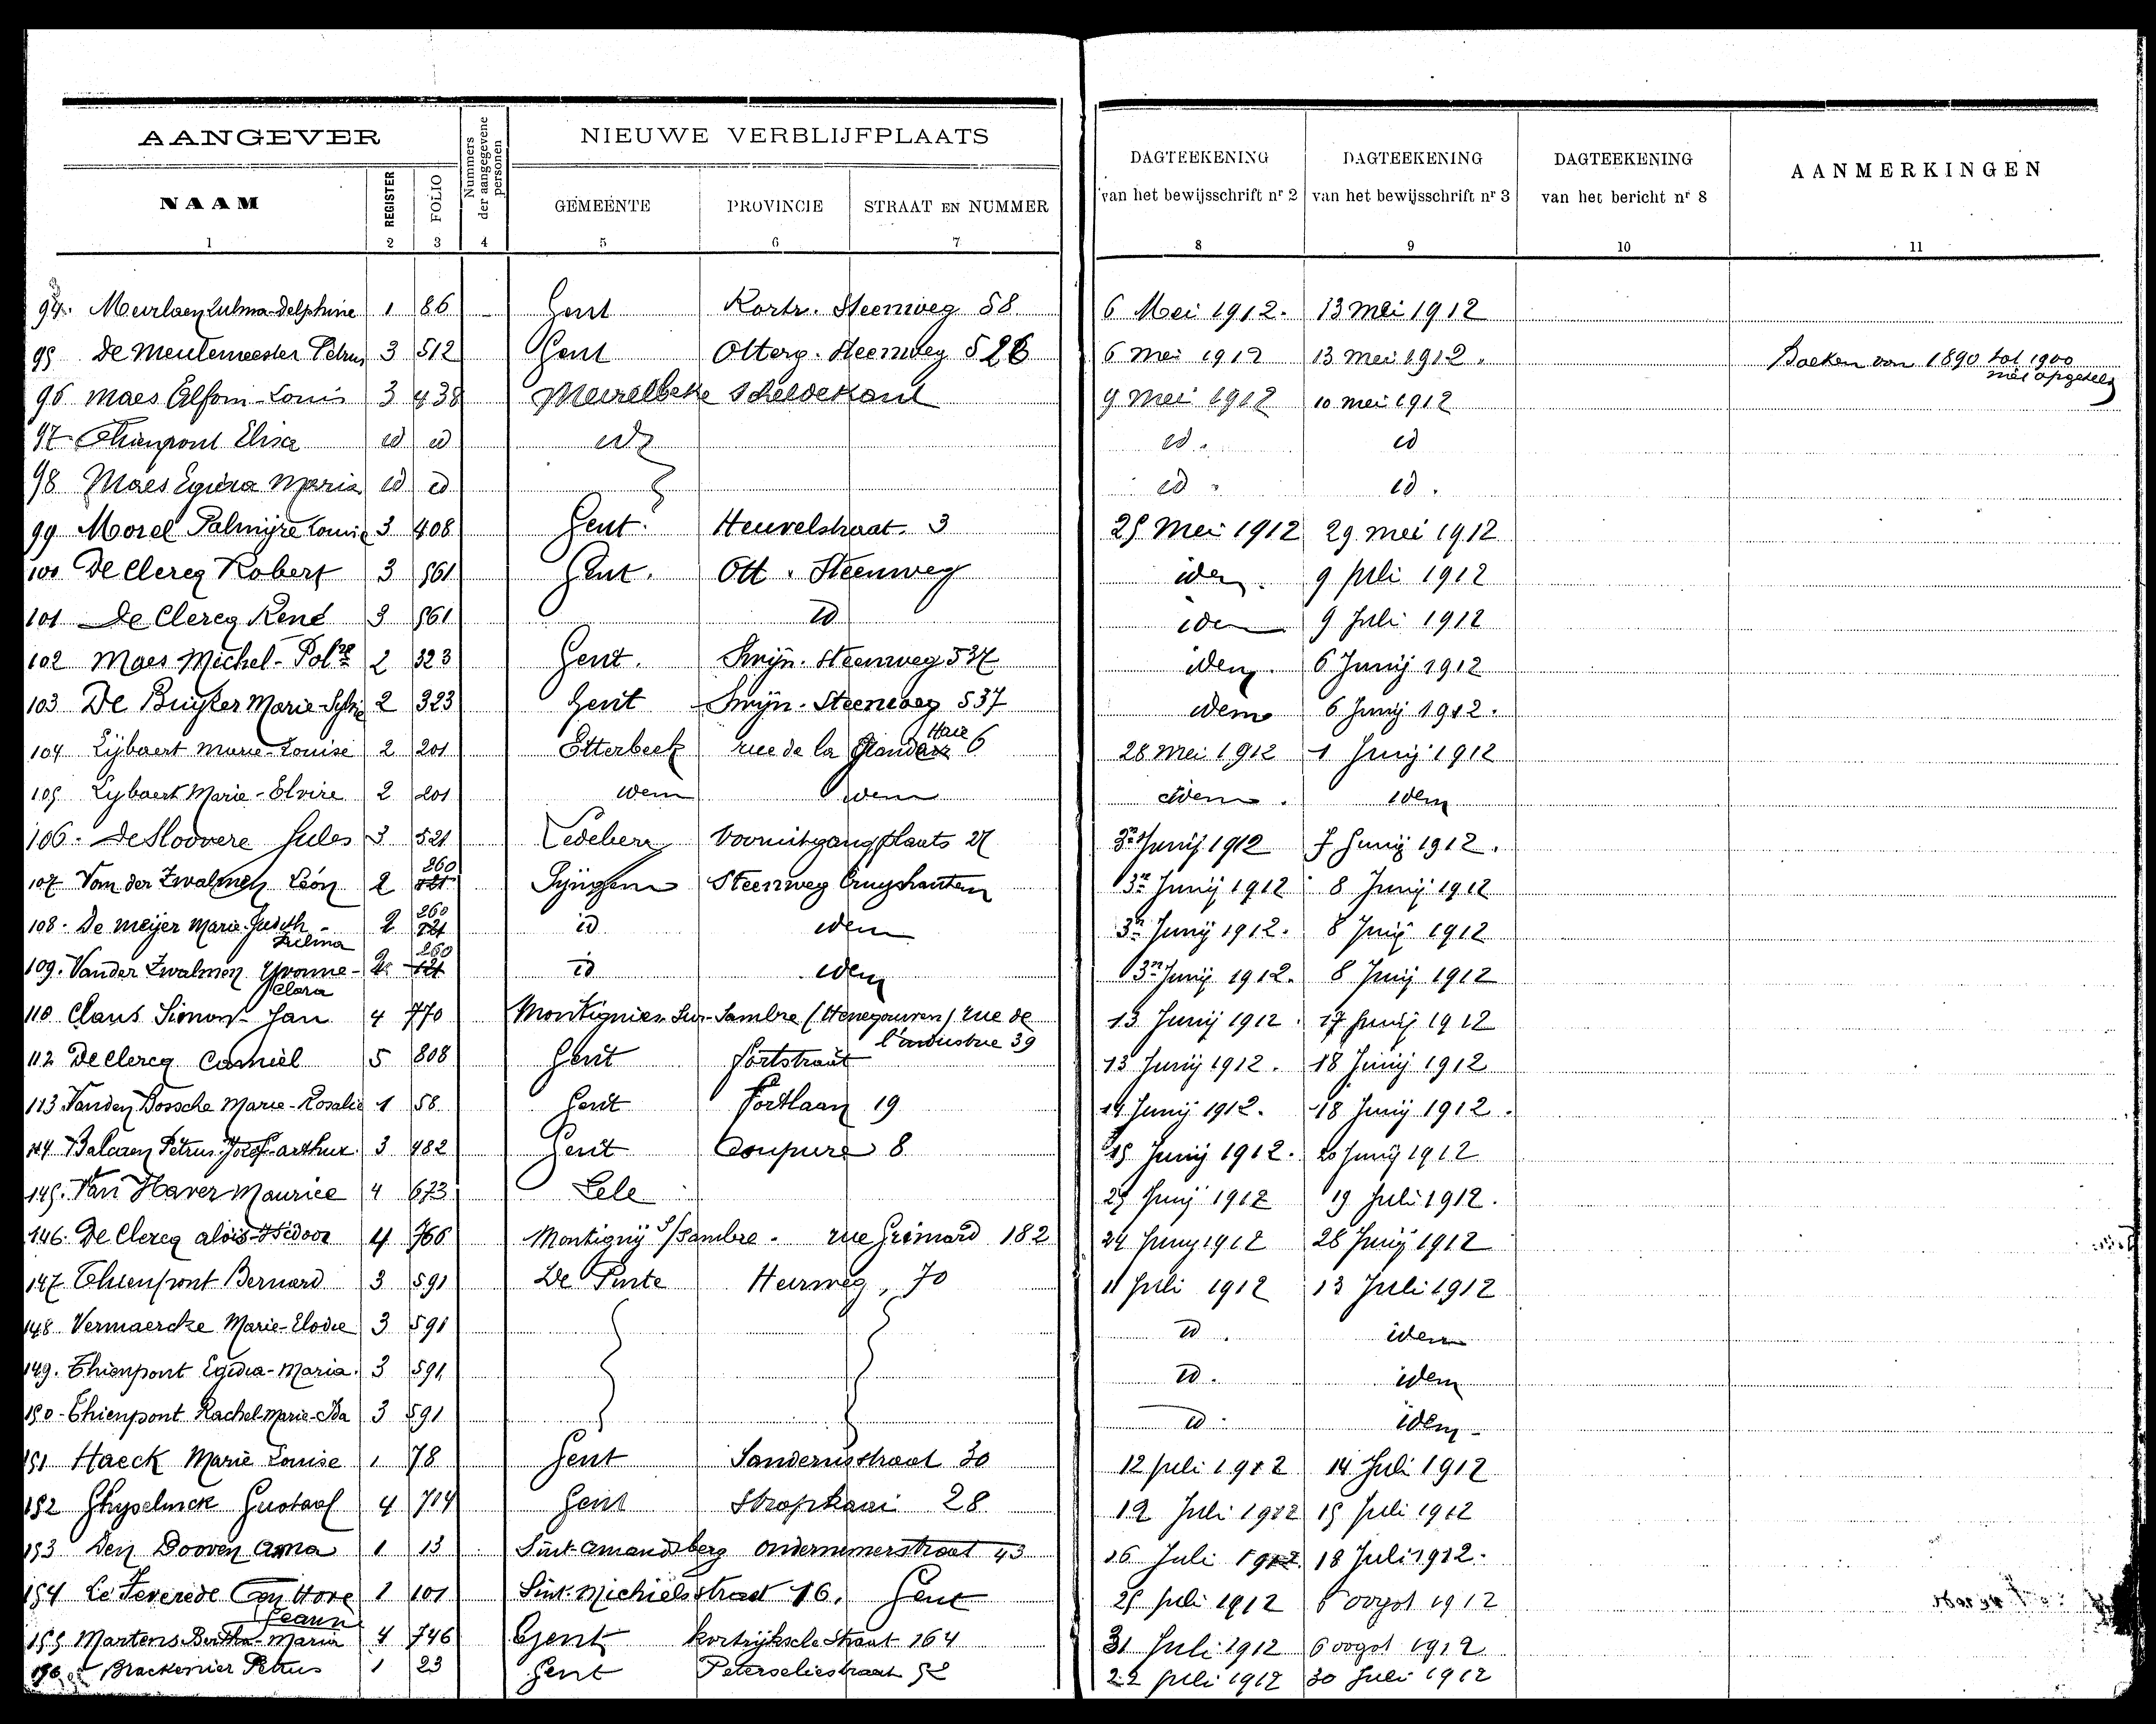 AANGEVER
Nummers der aangegevene personen
NIEUWE VERBLIJFPLAATS
DAGTEEKENING van het bewijsschrift nr 2
DAGTEEKENING van het bewijsschrift nr 3
DAGTEEKENING van het bericht nr 8
AANMERKINGEN
NAAM REGISTER FOLIO GEMEENTE PROVINCIE STRAAT EN NUMMER
1 2 3 4 5 6 7 8 9 10 11
94. Meurlaey Zulma-Delphine 1 86 Gent Kortr. Steenweg 58 6 Mei 1912. 13 mei 1912
95 De Meulemeester Petrus 3 512 Gent Otterg. Steenweg 526 6 mei 1912 13 mei 1912. Boeken van 1890 tot 1900
96 Maes Louis 3 438 Meirelbeke Scheldekant 9 mei 1912 10 mei 1912
97 Thienpont Elisa id id id id. id
98 Maes Egidia Maria id id id id.
99 Morel Palmyre Louise 3 408 Gent. Heuvelstraat 3 25 Mei 1912 29 mei 1912
100 De Clercq Robert 3 561 Gent. Ott. Steenweg idem. 9 Juli 1912
101 De Clercq René 3 561 id idem 9 Juli 1912
102 Maes Michel- 2 323 Gent. Swijn. Steenweg 537 idem. 6 Junij 1912
103 De Buyker Marie-Sylvie 2 323 Gent Swijn. Steenweg 537 idem 6 Junij 1912.
104 Lijbaert Marie-Louise 2 201 Etterbeek rue de la Haie 6 28 mei 1912 1 Junij 1912
105 Lybaert Marie-Elvire 2 201 idem idem idem. idem
106. De Sloovere Jules 3 521 Ledeberg Vooruitgangplaats 27 3n Junij 1912 7 Junij 1912.
107 Van der Zwalmen Léon 2 260 Syngem Steenweg Cruyshautem 3n Junij 1912 8 Junij 1912
108. De Meijer Marie-Judith - 2 260 id idem 3n Junij 1912. 8 Junij 1912
Zulma
109. Vander Zwalmen Yvonne- 2 260 id idem 3n Junij 1912. 8 Junij 1912
Clara
110 Claus Simon-Jan 4 770 Montignies-Sur-Sambre (Henegouwen) rue de 13 Junij 1912. 17 Junij 1912
l'industrie 39
112 De Clercq Camiel 5 808 Gent Fortstraat 13 Junij 1912. 18 Junij 1912
113 Vanden Bossche Marie-Rosalie 1 58 Gent Fortlaan 19 14 Junij 1912. 18 Junij 1912.
Balcaen Petrus-Jozef-arthur. 3 482 Gent Coupure 8 15 Junij 1912. 20 Junij 1912
145. Van Haver Maurice 4 673 25 Junij 1912 19 Juli 1912.
146. De Clercq aloïs-Isidoor 4 766 Montigny s/Sambre. rue Grimard 182 24 Juny 1912 28 Junij 1912
147 Thienpont Bernard 3 591 De Pinte Heirweg, 70 11 Juli 1912 13 Juli 1912
148 Vermaercke Marie-Elodie 3 591 id. idem
149. Thienpont Egidia-Maria. 3 591 id. idem
150- Thienpont Rachel-Marie-Ida 3 591 id. idem
151 Haeck Marie Louise 1 78 Gent Sanderusstraat 30 12 Juli 1912 14 Juli 1912
152 Ghyselinck Gustaaf 4 714 Gent Stropkaai 28 12 Juli 1912 15 Juli 1912
153 Den Dooven 1 13 Sint-Amandsberg Ondernemerstraat 43 16 Juli 1912 18 Juli 1912.
154 1 101 Sint-Michielsstraat 16. Gent 25 Juli 1912 6 oogst 1912
155 Martens Maria 4 746 Gent Kortrijksche Straat 164 31 Juli 1912 6 oogst 1912
156 Brackenier Petrus 1 23 Gent Peterseliestraat 52 22 Juli 1912 30 Juli 1912